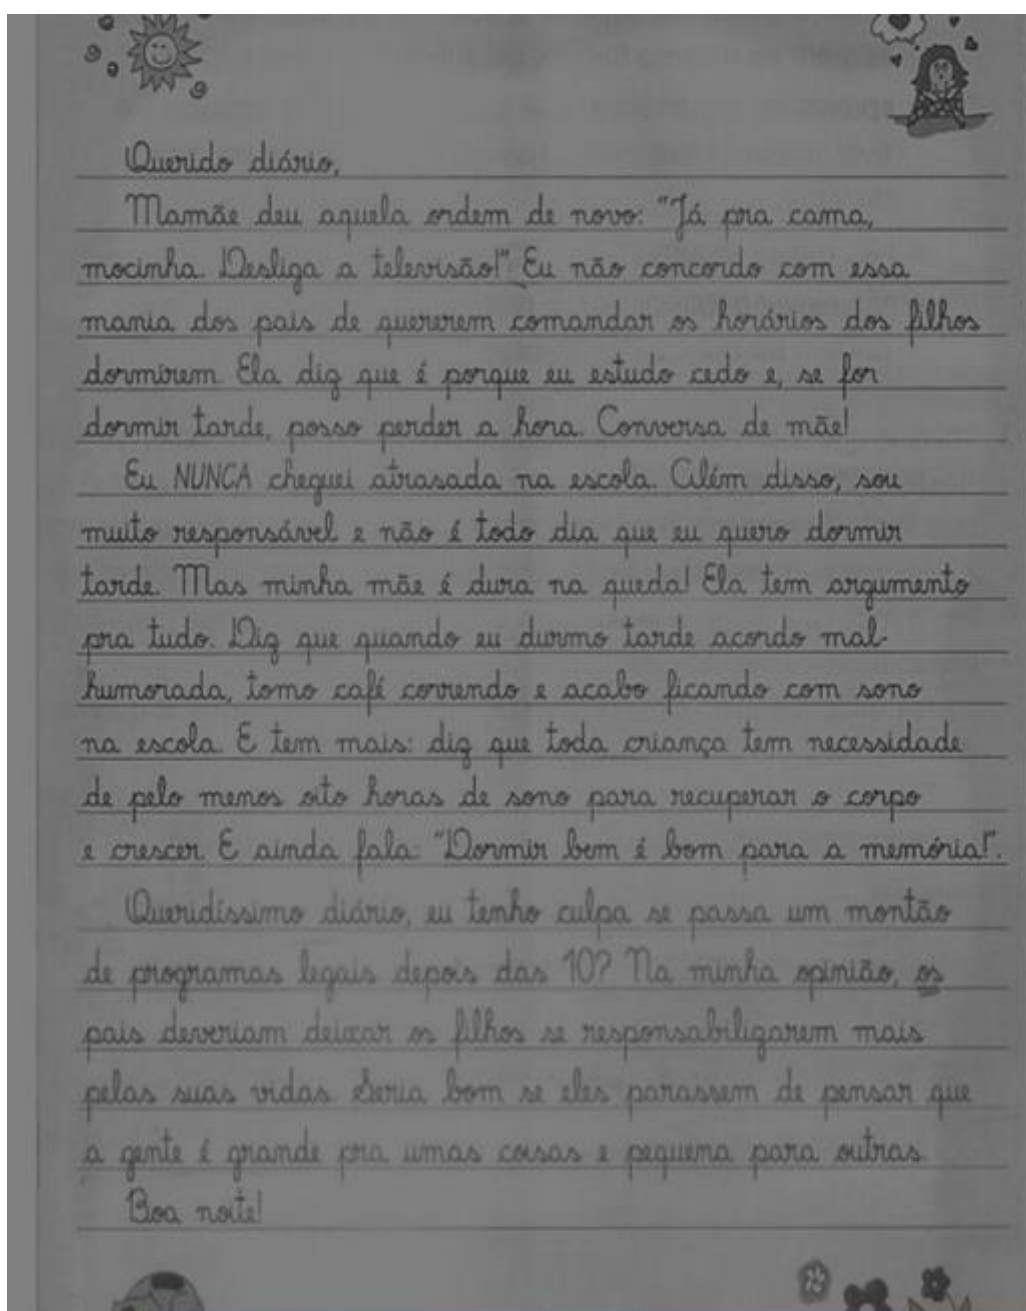 Querido diário,
Mamãe deu aquela ordem de novo: "Já pra cama,
mocinha. Desliga a televisão!". Eu não concordo com essa
mania dos pais de quererem comandar os horários dos filhos
dormirem. Ela diz que é porque eu estudo cedo e, se for
dormir tarde, posso perder a hora. Conversa de mãe!
Eu NUNCA cheguei atrasada na escola. Além disso, sou
muito responsável e não é todo dia que eu quero dormir
tarde. Mas minha mãe é dura na queda! Ela tem argumento
pra tudo. Diz que quando eu durmo tarde acordo mal-
humorada, tomo café correndo e acabo ficando com sono
na escola. E tem mais: diz que toda criança tem necessidade
de pelo menos oito horas de sono para recuperar o corpo
e crescer. E ainda fala: "Dormir bem é bom para a memória!".
Queridíssimo diário, eu tenho culpa se passa um montão
de programas legais depois das 10? Na minha opinião, os
pais deveriam deixar os filhos se responsabilizarem mais
pelas suas vidas. Seria bom se eles parassem de pensar que
a gente é grande pra umas coisas e pequena para outras.
Boa noite!